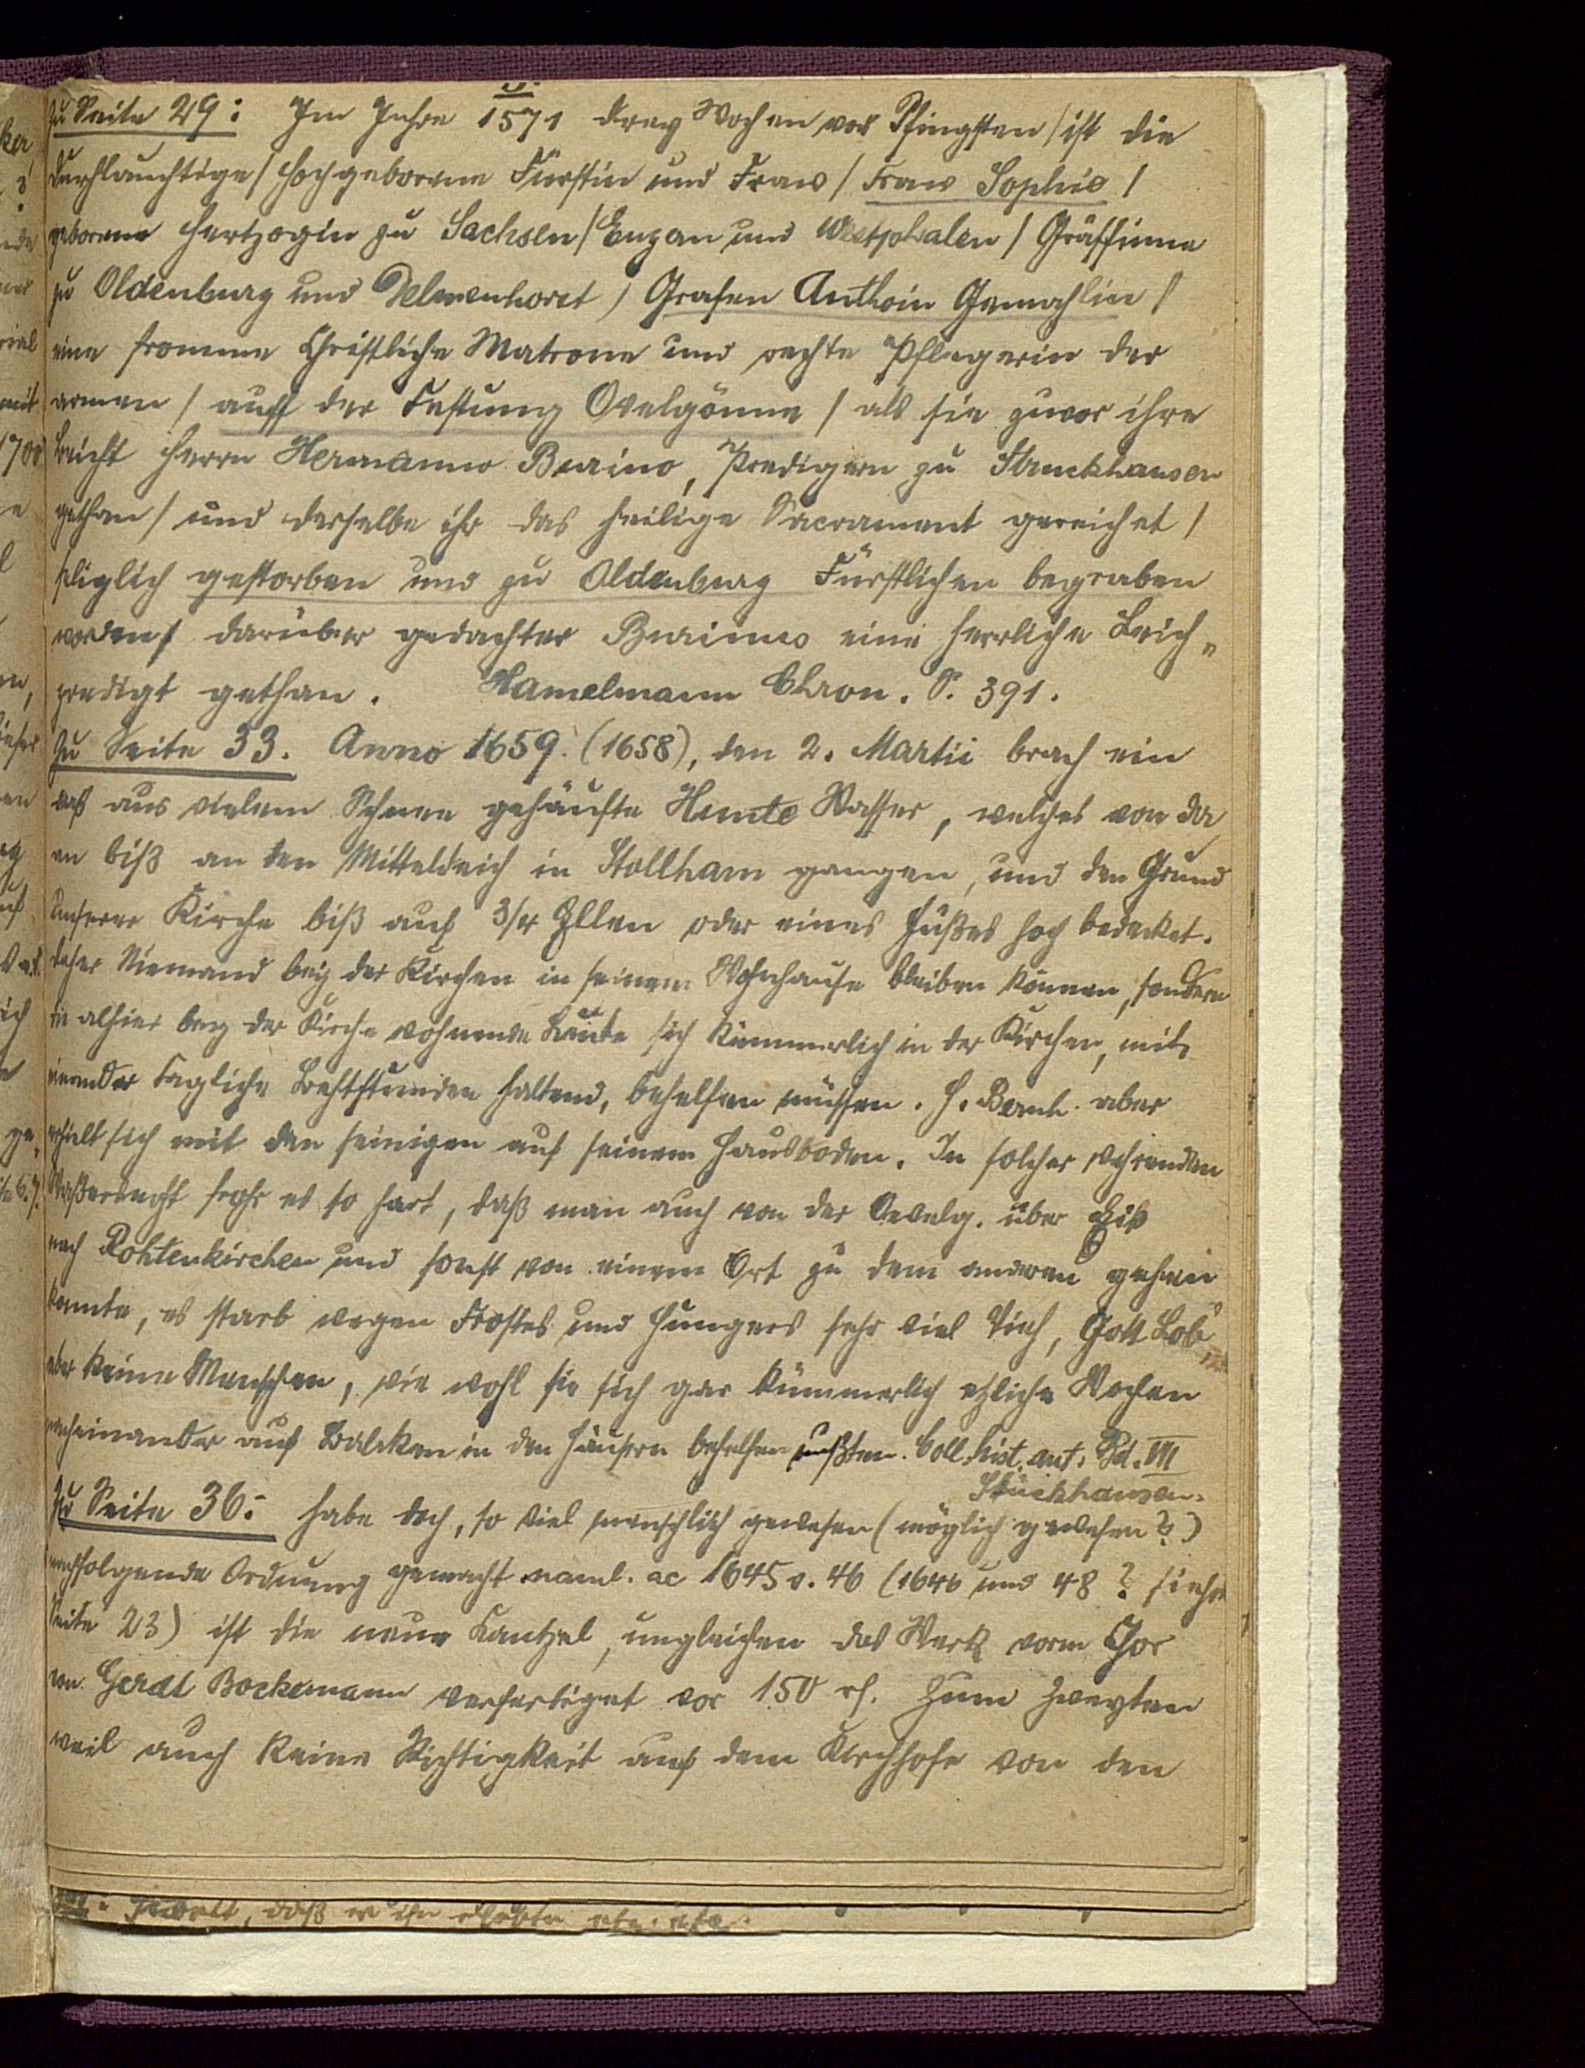 zu Seite 29: Im Jahre 1571 drey Wochen vor Pfingsten / ist die
durchlauchtige / hochgeborene Fürstin und Fraw / Fraw Sophie /
geborene Hertzogin zu Sachsen / Engan und Westphalen / Gräffinne
zu Oldenburg und Delmenhorst / Grafen Anthoin Gemahlin /
eine fromme Christliche Matrone und rechte Pflegerin der
armen / auff der Festung Ovelgönne / als sie zuvor ihre
Beicht Herrn Hermanno Burino, Predigern zu Struckhausen
gethan / und derselbe ihr das heilige Sacrament gereichet /
seliglich gestorben und zu Oldenburg Fürstlichen begraben
worden / darüber gedachter Burinus eine herrliche Leich-
predigt gethan. Hamelmann Chron. S. 391.
Zu Seite 33. Anno 1659. (1658), den 2. Martii brach ein
das aus vielem Schnee gehäufte Hunte Wasser, welches von da
an biß an den Mitteldeich in Stollham gangen, und den Grund
unserer Kirche biß auf 3/4 Ellen oder eines Fußes hoch bedecket.
daher Niemand bey der Kirchen in seinem Wohnhause bleiben können, sondern
die alhier bey der Kirche wohnende Leute sich kümmerlich in der Kirchen, mit
einander tagliche Bethstunden haltend, behelfen müssen. H. Bernh. aber
erhielt sich mit den seinigen auf seinem Hausboden. In solcher wehrenden
Waßersnoht frohr es so hart, daß man auch von der Ovelg. über Eiß
nach Rohtenkirchen und sonst von einem Ort zu dem anderen gehen
konnte, es starb wegen Frostes und Hungers sehr viel Vieh, Gott Lob
aber keine Menschen, wie wohl sie sich gar kümmerlich etzliche Wochen
nacheinander auf Balcken in den Häusern behelfen mußten. Coll. hist. ant. Bd. III
Stückhausen.
Zu Seite 36: habe doch, so viel menschlich gewesen (möglich gewesen?)
nachfolgende Ordnung gemacht naml. ac 1645 v. 46 (1646 und 48? siehe
Seite 23) ist die neue Cantzel, ungleichen das Werk vorm Chor
von Gerdt Bockmann verfertiget vor 150 rh. Zum Zweyten
weil auch keine Richtigkeit auf dem Kirchhofe von den